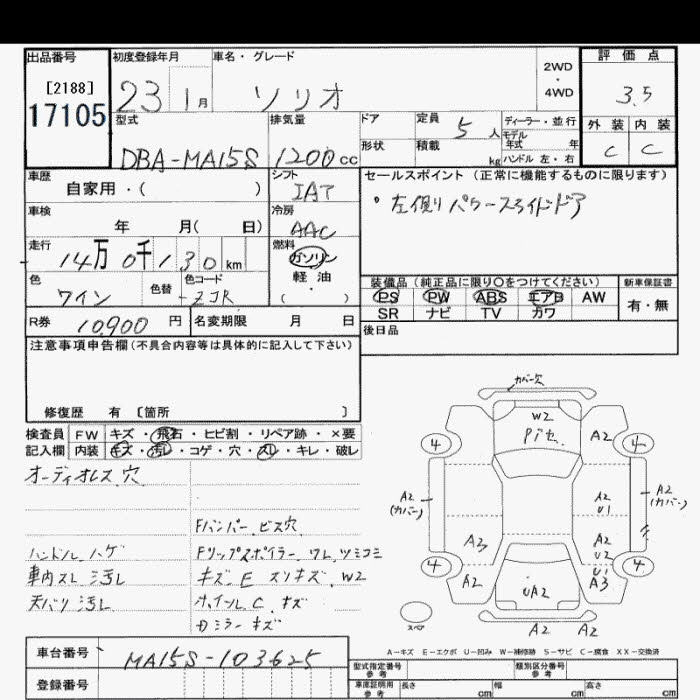 出品番号 初度登録年月 車名・グレード 2WD・4WD 評価点
[2188]
17105
23 1月 ソリオ 3.5
型式 排気量 ドア 定員 ディーラー・並行 外装 内装
DBA-MA15S 1200cc 5人 モデル年式 年 C C
形状 積載 kg ハンドル 左・右
車歴 シフト セールスポイント (正常に機能するものに限ります)
自家用・( ) IAT
・左側りパワースライドドア
車検 冷房
年 月( 日) AAC
走行 燃料
14万0千130km ガソリン
軽・油
( )
色 色替 色コード
ワイン ZJR
装備品 (純正品に限り○をつけてください) 新車保証書
PS PW ABS エアB AW 有・無
SR ナビ TV カワ
R券 10900円 名変期限 月 日
後日品
注意事項申告欄(不具合内容等は具体的に記入して下さい)
修復歴 有 [箇所 ]
検査員 FW キズ・飛石・ヒビ割・リペア跡・×要
記入欄 内装 キズ・汚レ・コゲ・穴・スレ・キレ・破レ
オーディオレス穴
Fバンパー ビス穴
ハンドル ハゲ Fリップスポイラー ワレ、ツミコミ
車内スレ 汚レ キズ、E スリキズ、W2
天バリ 汚レ ホイールC、キズ
Dミラー キズ
カバー欠
W2
Pイセ
A2
4 4
A2
(カバー)
A2
U1
A2
(カバー)
A3
A2
U2
U1
4 4
A2 UA2 A3
スペア
A2 A2
A-キズ E-エクボ U-凹み W-補修跡 S-サビ C-腐食 XX-交換済
車台番号 MA15S-103625
登録番号
型式指定番号 参考 類別区分番号 参考
車庫証明用 参考 長さ cm 幅 cm 高さ cm